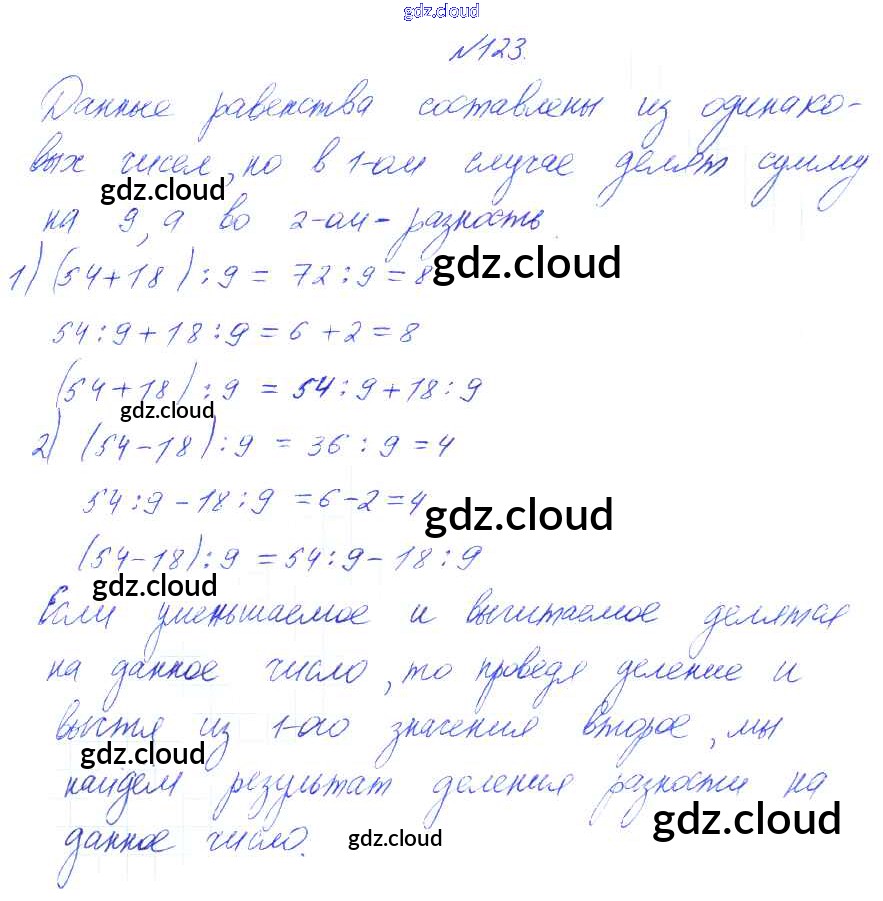 gdz.cloud
№123.
Данные равенства составлены из одинако-
вых чисел, но в 1-ом случае делят сумму
gdz.cloud
на 9, а во 2-ом - разность.
gdz.cloud
1) (54+18) : 9 = 72 : 9 = 8
54 : 9 + 18 : 9 = 6 + 2 = 8
(54+18) : 9 = 54 : 9 + 18 : 9
gdz.cloud
2) (54-18) : 9 = 36 : 9 = 4
54 : 9 - 18 : 9 = 6 - 2 = 4
gdz.cloud
(54-18) : 9 = 54 : 9 - 18 : 9
gdz.cloud
Если уменьшаемое и вычитаемое делятся
на данное число, то проведя деление и
вычтя из 1-ого значения второе, мы
gdz.cloud
найдем результат деления разности на
gdz.cloud
данное число.
gdz.cloud